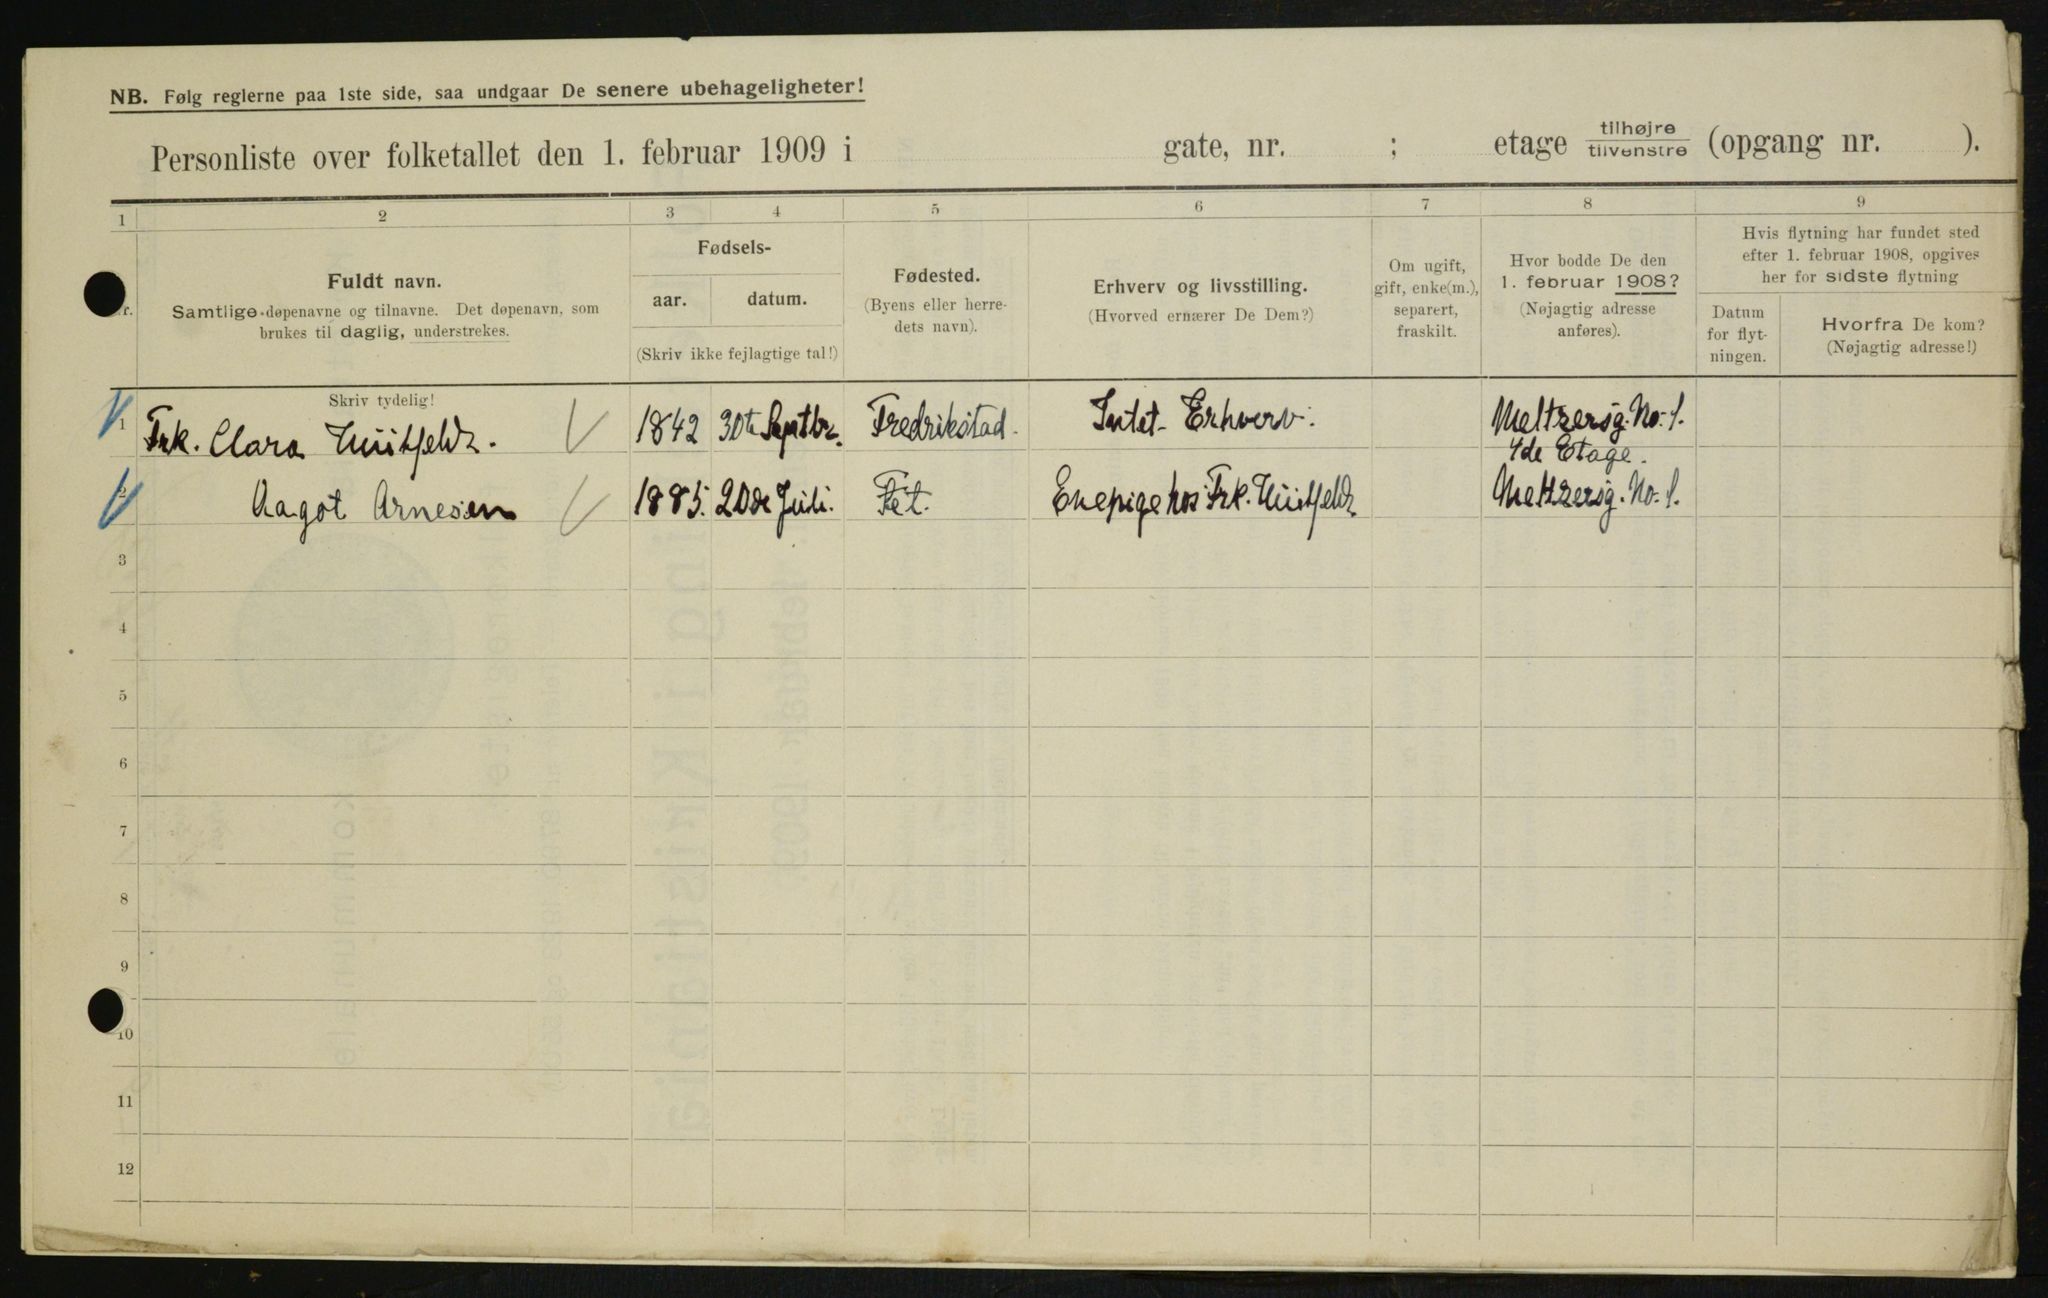 NB. Følg reglerne paa 1ste side, saa undgaar De senere ubehageligheter!
Personliste over folketallet den 1. februar 1909 i gate, nr. ; etage tilhøjre tilvenstre (opgang nr. ).
1 2 3 4 5 6 7 8 9
Fuldt navn.
Samtlige døpenavne og tilnavne. Det døpenavn, som
brukes til daglig, understrekes.
Fødsels-
aar. datum.
(Skriv ikke fejlagtige tal!)
Fødested.
(Byens eller herre-
dets navn).
Erhverv og livsstilling.
(Hvorved ernærer De Dem?)
Om ugift,
gift, enke(m.),
separert,
fraskilt.
Hvor bodde De den
1. februar 1908?
(Nøjagtig adresse
anføres).
Hvis flytning har fundet sted
efter 1. februar 1908, opgives
her for sidste flytning
Datum
for flyt-
ningen.
Hvorfra De kom?
(Nøjagtig adresse!)
Skriv tydelig!
1 Frk. Clara Huitfeldt. 1842 30te Septbr. Fredrikstad. Intet Erhverv. Meltzersg. No. 1.
4de Etage.
2 Aagot Arnesen 1885. 20de Juli. Fet. Enepige hos Frk. Huitfeldt Meltzersg. No. 1.
3
4
5
6
7
8
9
10
11
12